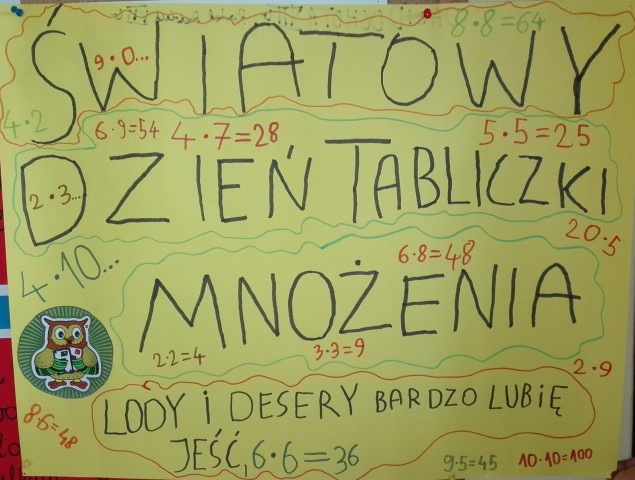 8·8=64
ŚWIATOWY
9·0...
4·2
6·9=54 4·7=28 5·5=25
DZIEŃ TABLICZKI
2·3...
20·5
4·10...
6·8=48
MNOŻENIA
2·2=4
3·3=9
2·9
LODY i DESERY BARDZO LUBIĘ
8·6=48
JEŚĆ, 6·6=36
9·5=45
10·10=100